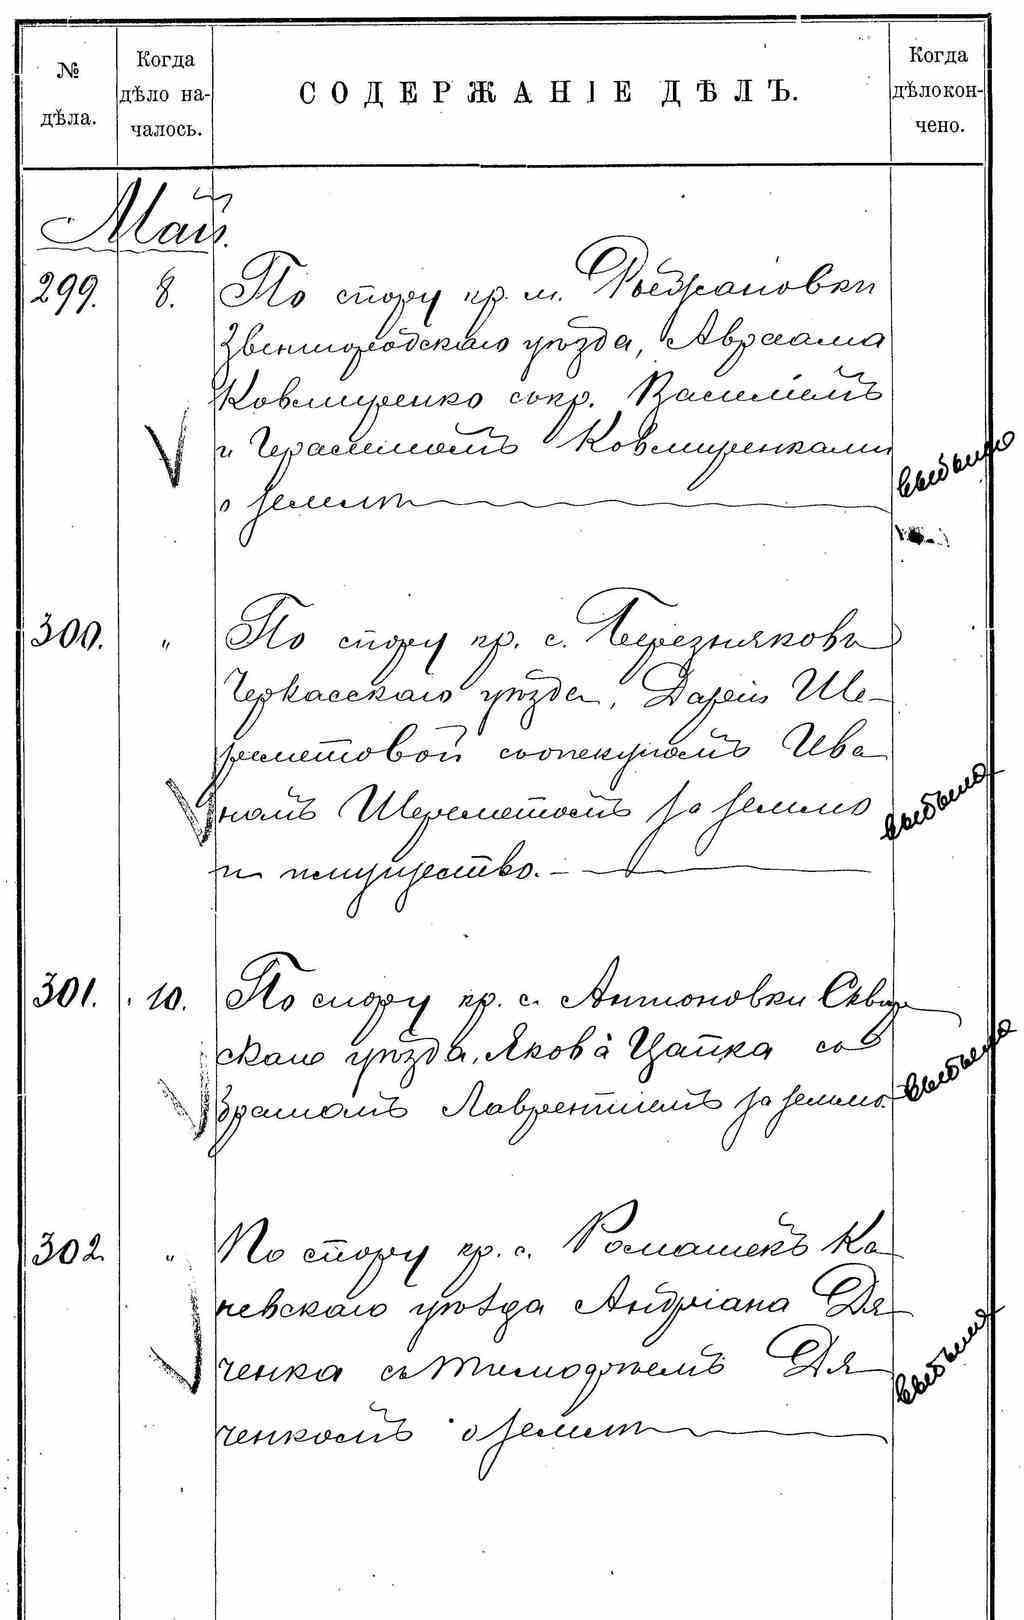 № дѣла.
Когда дѣло на-чалось.
СОДЕРЖАНІЕ ДѢЛЪ.
Когда дѣло кон-чено.
Май.
299. 8. По спору кр. м. Рыжановки
Звенигородскаго уѣзда, Авраама
Ковмиренко съ кр. Василіемъ
и Герасимомъ Ковмиренками
о землѣ
выбыло
300. „ По спору кр. с. Березняковъ
Черкасскаго уѣзда, Дарьи Ше-
реметовой съ опекуномъ Ива
номъ Шереметомъ за землю
и имущество. —
выбыло
301. 10. По спору кр. с. Антоновки Сквир
скаго уѣзда, Якова Цапка съ
братомъ Лаврентіемъ за землю.
выбыло
302 „ По спору кр. с. Ромашекъ Ка
невскаго уѣзда Андріана Дя
ченка съ Тимофѣемъ Дя
ченкомъ о землѣ
выбыло